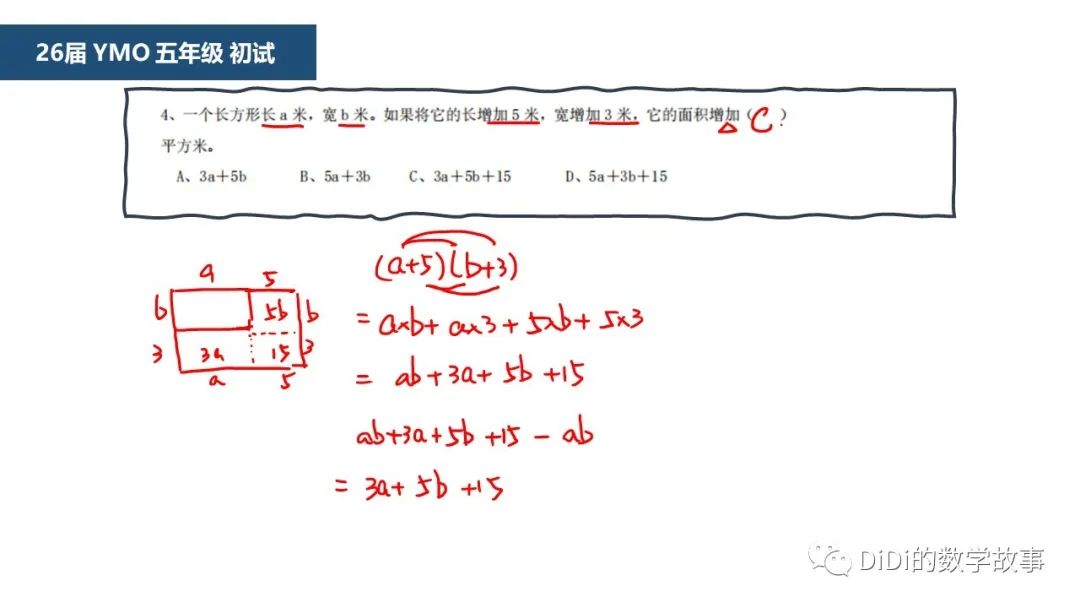 26届 YMO 五年级 初试
4、一个长方形长 a 米，宽 b 米。如果将它的长增加 5 米，宽增加 3 米，它的面积增加（ C ）
平方米。
A、3a＋5b B、5a＋3b C、3a＋5b＋15 D、5a＋3b＋15
a 5
b 5b b
3 3a 15 3
a 5
(a+5)(b+3)
= a×b+ a×3 + 5×b + 5×3
= ab+3a+ 5b +15
ab+3a+5b +15 - ab
= 3a+ 5b +15
DiDi的数学故事